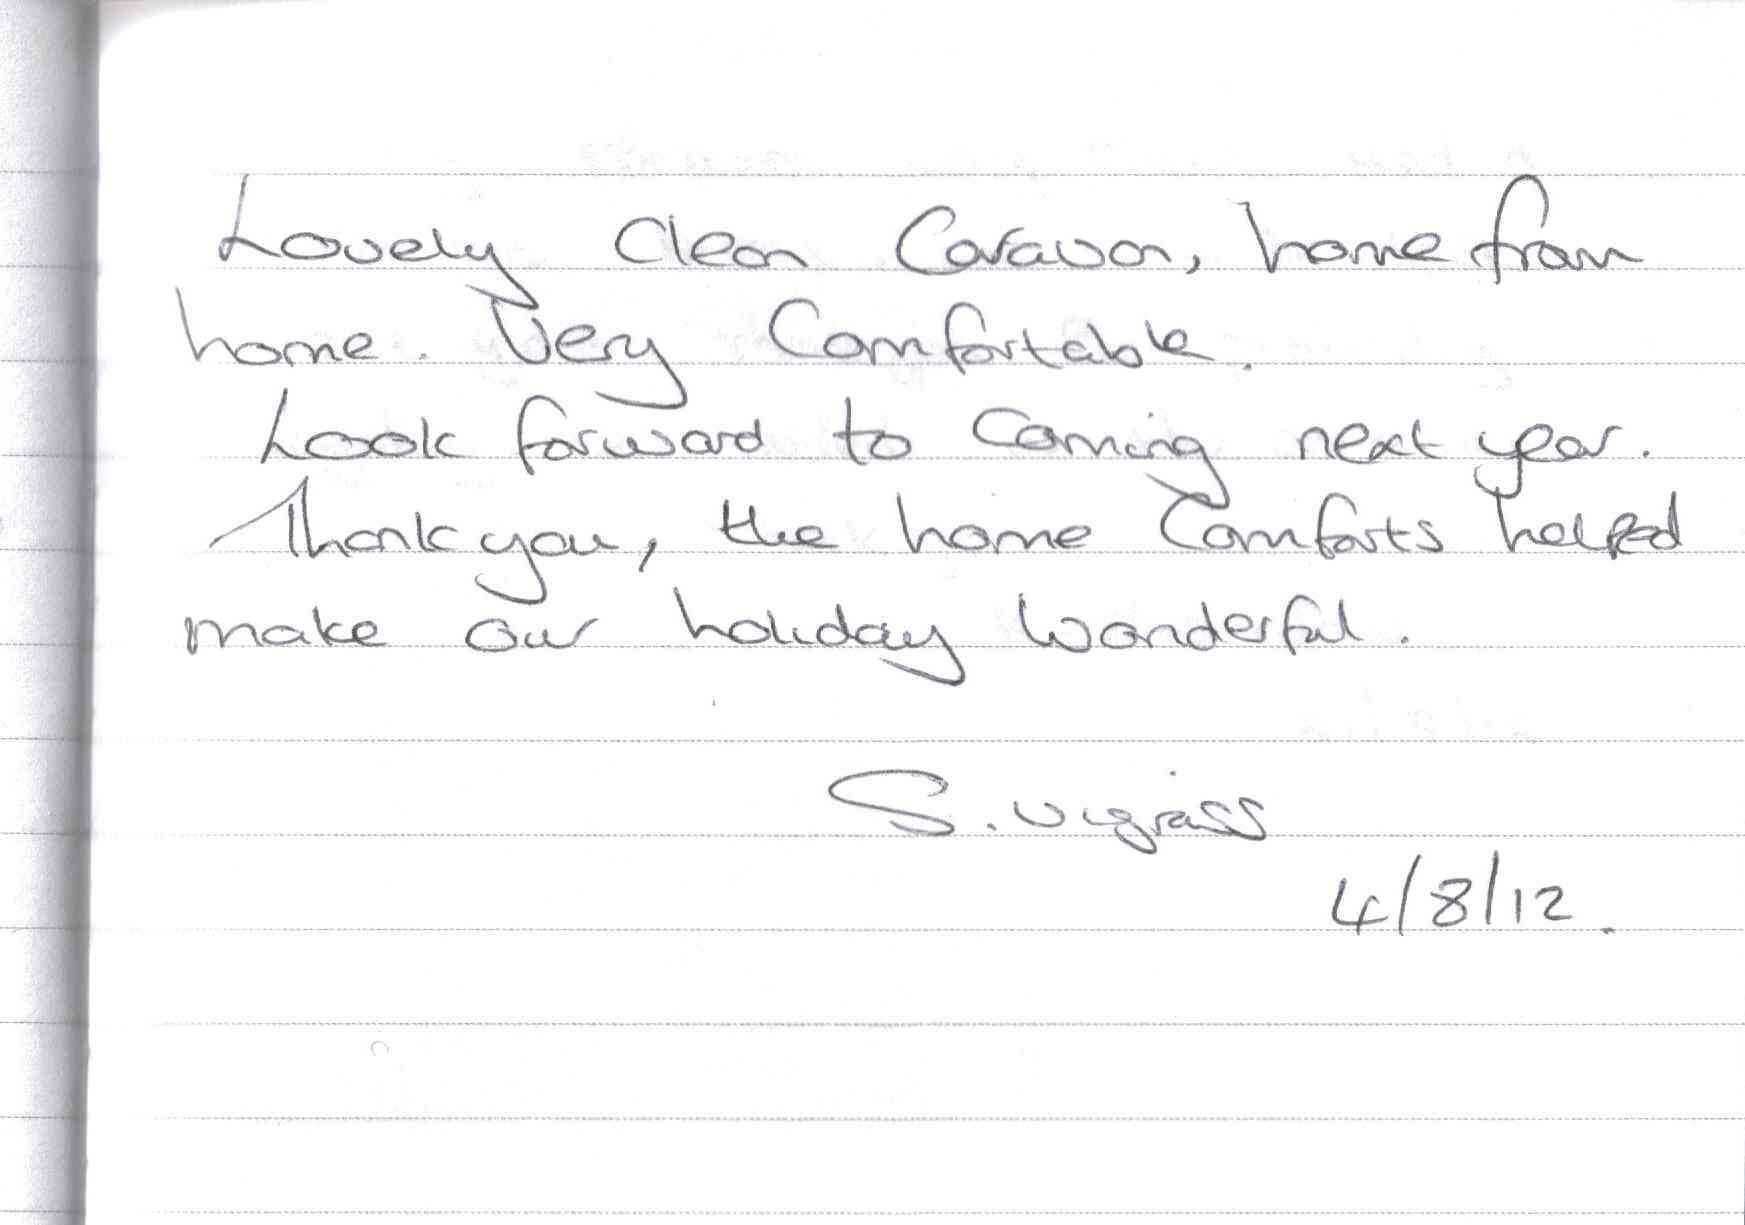 Lovely Clean Caravan, home from
home. Very Comfortable.
Look forward to Coming next year.
Thank you, the home Comforts helped
make our holiday Wonderful.
S. Vigrass
4/8/12.